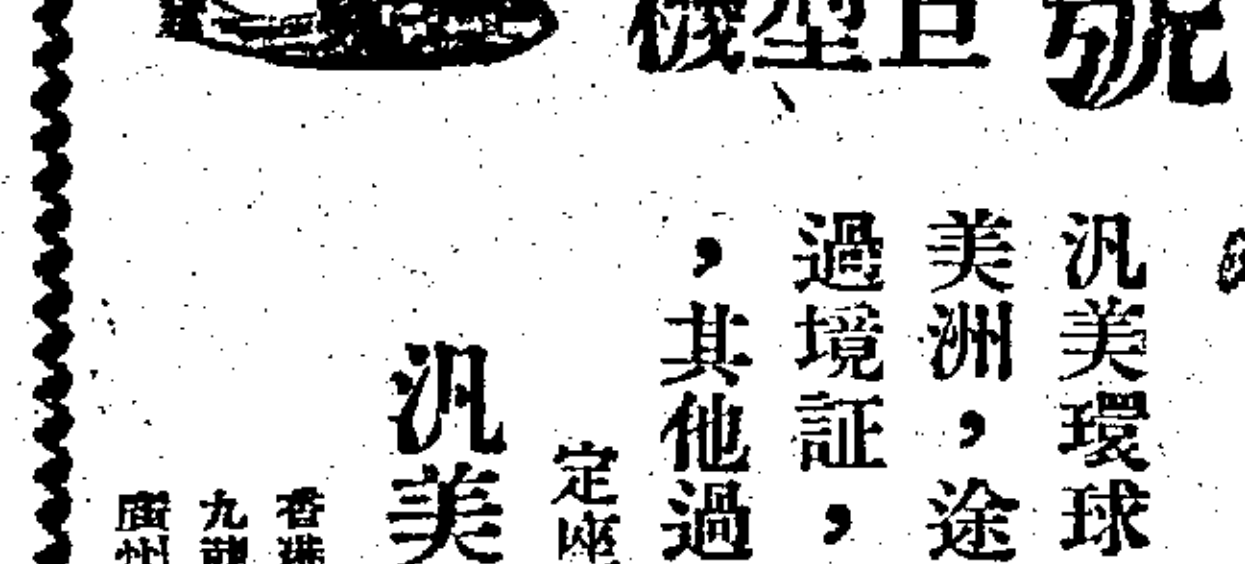 號
巨型機
汎美環球
美洲，途
過境証，
，其他過
定座
汎美
香港
九龍
廣州